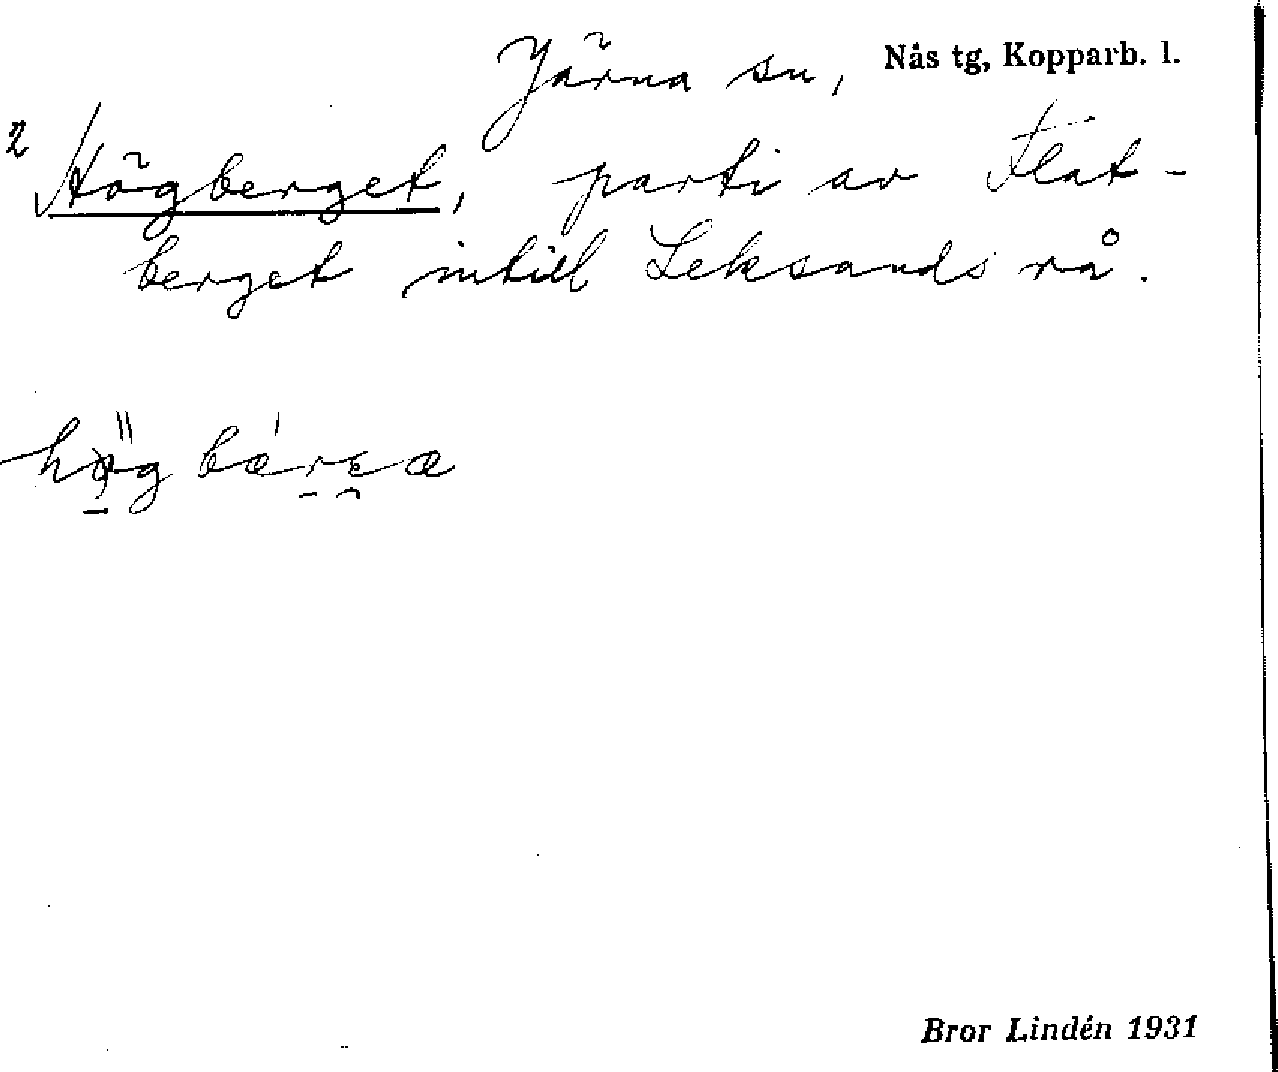 Järna sn, Nås tg, Kopparb. l.
2 Högberget, parti av Flat-
berget intill Leksands rå.
Bror Lindén 1931